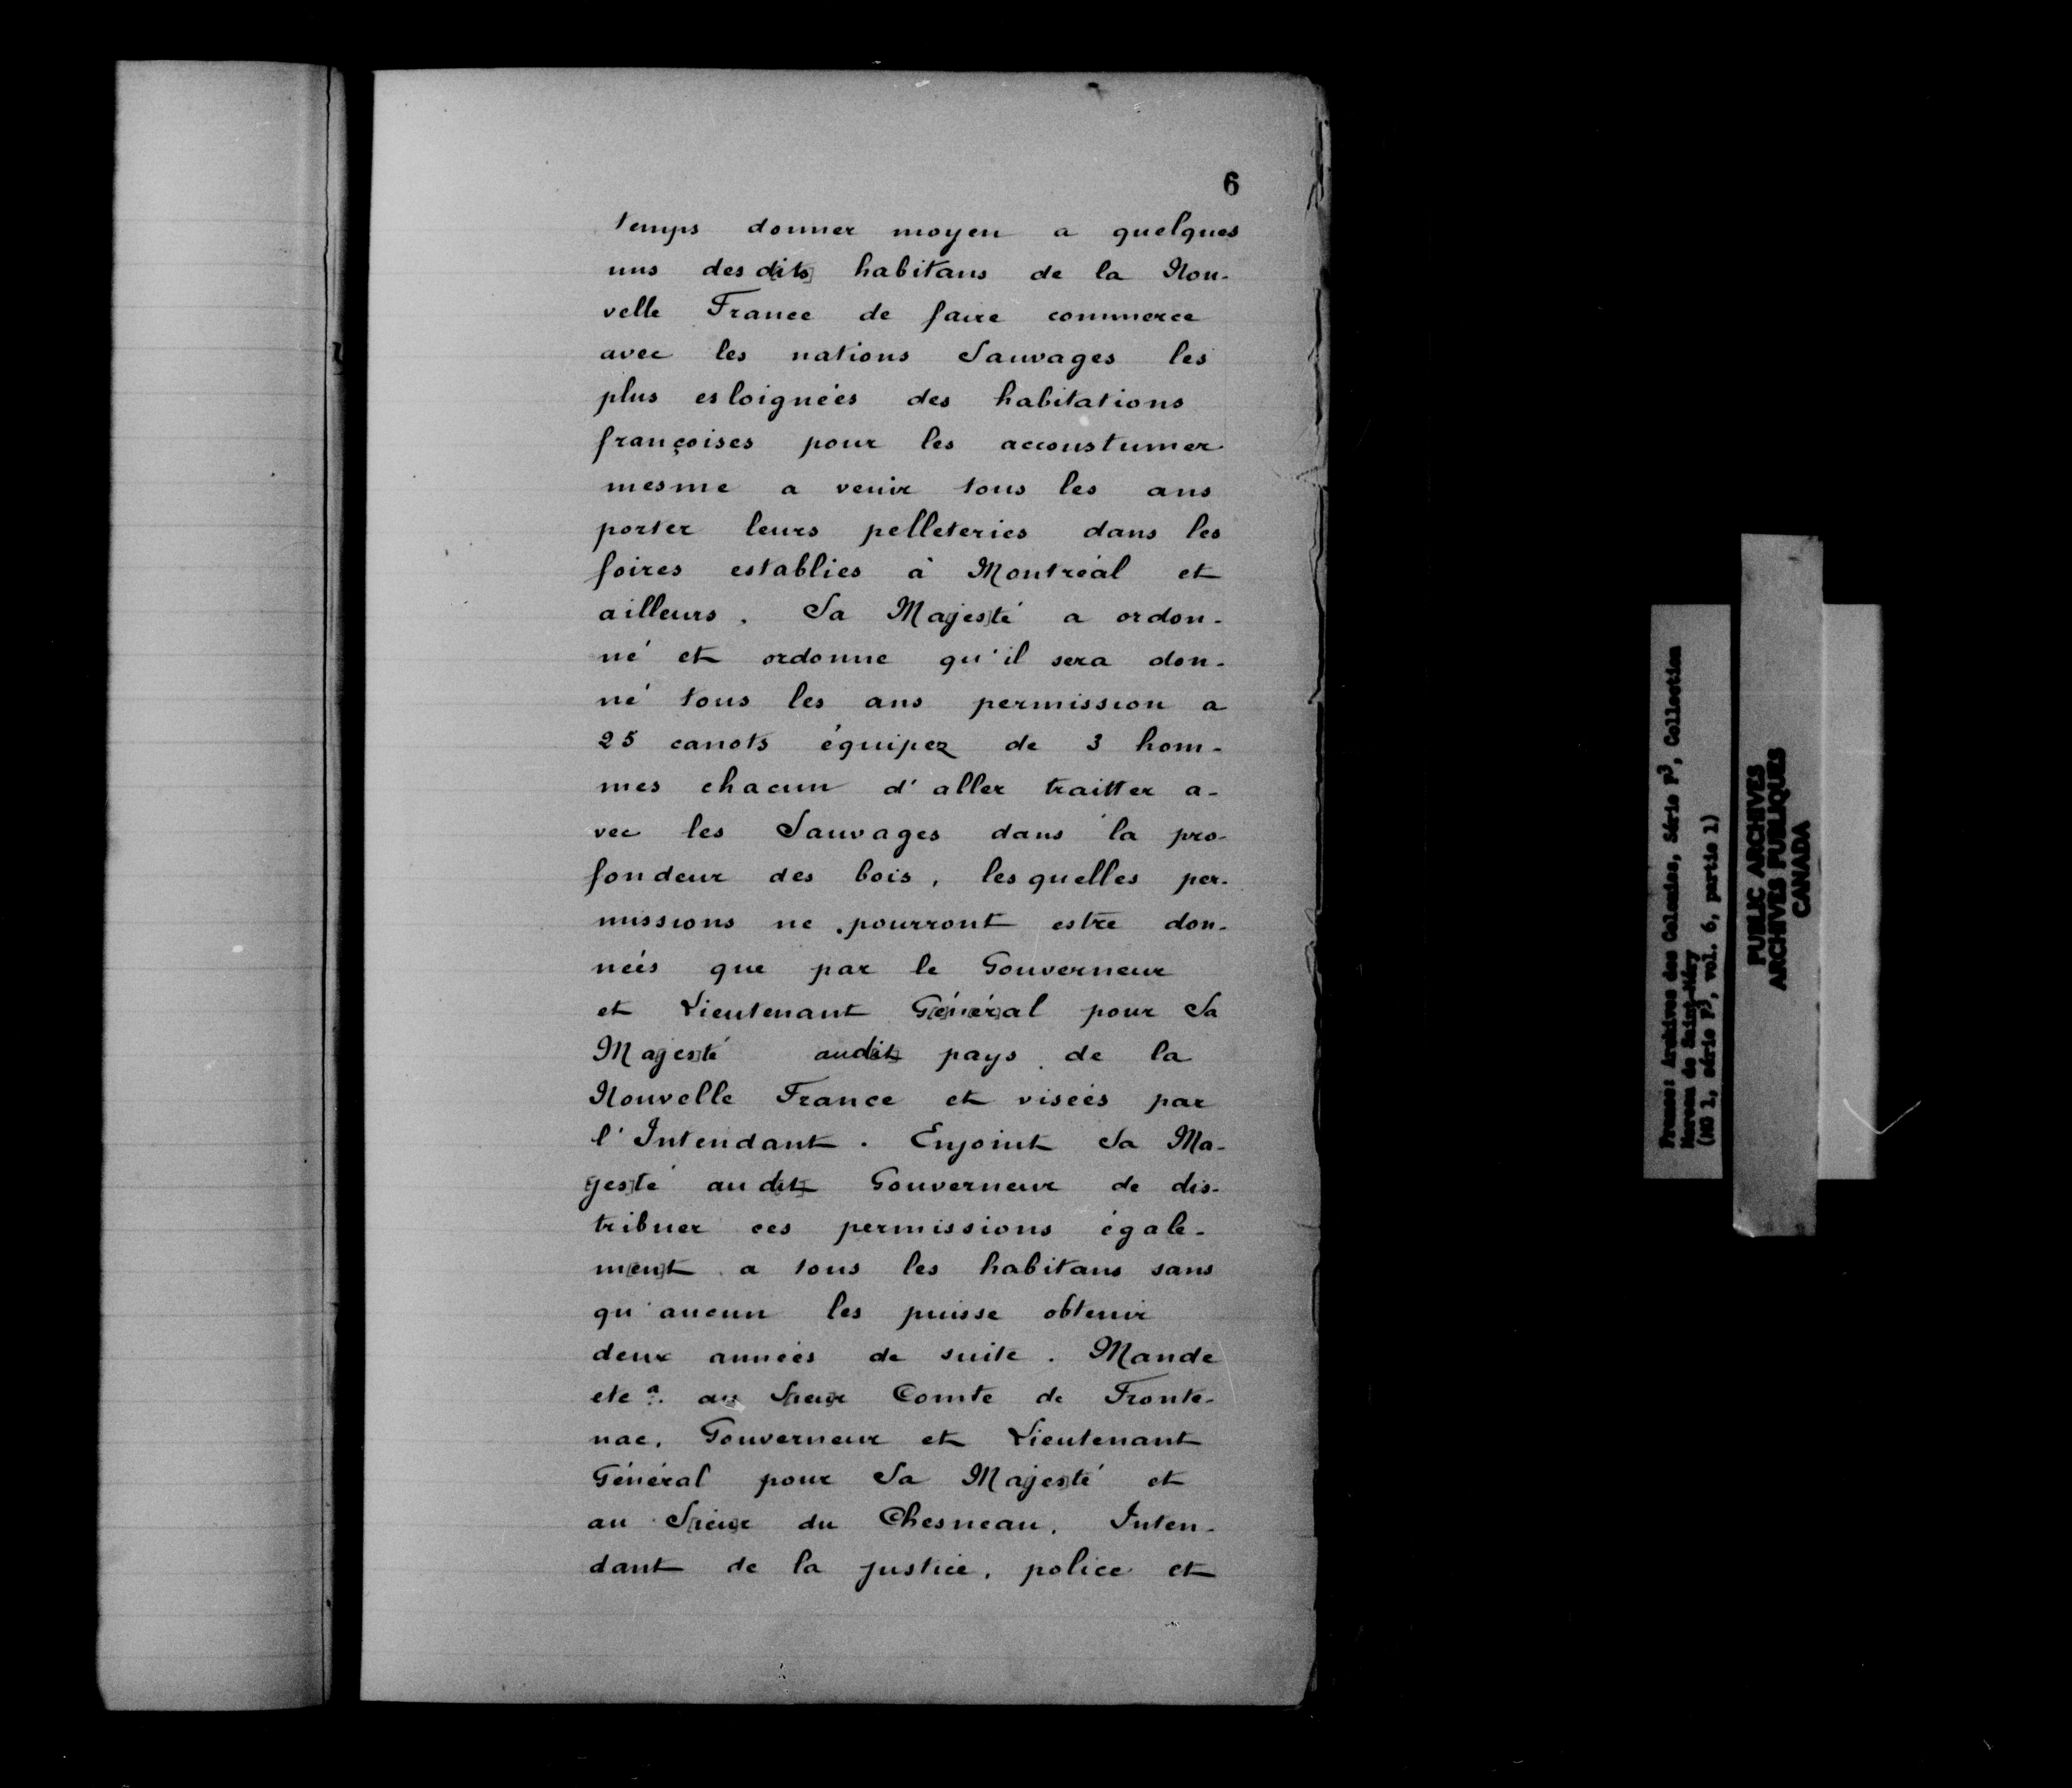 6
temps donner moyen a quelques
uns desd[its] habitans de la Nou-
velle France de faire commerce
avec les nations Sauvages les
plus esloignées des habitations
françoises pour les accoustumer
mesme a venir tous les ans
porter leurs pelleteries dans les
foires establies à Montréal et
ailleurs. Sa Ma[jes]té a ordon-
né et ordonne qu'il sera don-
né tous les ans permission a
25 canots équipez de 3 hom-
mes chacun d'aller traitter a-
vec les Sauvages dans la pro-
fondeur des bois, lesquelles per-
missions ne pourront estre don-
nées que par le Gouverneur
et Lieutenant G[é]n[ér]al pour Sa
Ma[jes]té aud[it] pays de la
Nouvelle France et visées par
l'Intendant. Enjoint Sa Ma-
[jes]té aud[it] Gouverneur de dis-
tribuer ces permissions égale-
m[en]t a tous les habitans sans
qu'aucun les puisse obtenir
deux années de suite. Mande
etc a. au S[ieu]r Comte de Fronte-
nac, Gouverneur et Lieutenant
Général pour Sa Ma[jes]té et
au S[ieu]r du Chesneau, Inten-
dant de la justice, police et
France: Archives des Colonies, Série F3, Collection
Moreau de Saint-Méry
(MG 1, série F3, vol. 6, partie 1)
PUBLIC ARCHIVES
ARCHIVES PUBLIQUES
CANADA